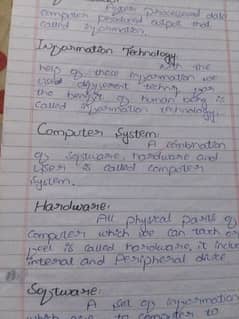 processed data
computer produced output that
called information.
Information Technology.
with the
help of these information we
used different techni for
the benefit of human being is
called information technology.
Computer System:
A combination
of software, hardware and
user is called computer
system.
Hardware:
All physical parts of
computer which we can touch or
feel is called hardware, it include
internal and Peripheral
Software:
A set of information
which are to computer to